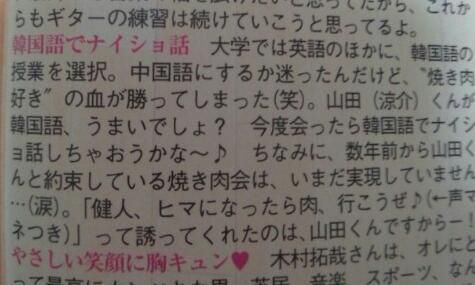 らもギターの練習は続けていこうと思ってるよ。
韓国語でナイショ話 大学では英語のほかに、韓国語の
授業を選択。中国語にするか迷ったんだけど、〝焼き肉
好き〟の血が勝ってしまった(笑)。山田(涼介)くんが
韓国語、うまいでしょ? 今度会ったら韓国語でナイシ
ョ話しちゃおうかな〜♪ ちなみに、数年前から山田く
んと約束している焼き肉会は、いまだ実現していません
…(涙)。「健人、ヒマになったら肉、行こうぜ♪(←声マ
ネつき)」って誘ってくれたのは、山田くんですからー!
やさしい笑顔に胸キュン♥ 木村拓哉さんは、オレにと